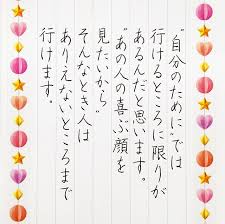 "自分のために"では
行けるところに限りが
あるんだと思います。
"あの人の喜ぶ顔を
見たいから"
そんなとき人は
ありえないところまで
行けます。